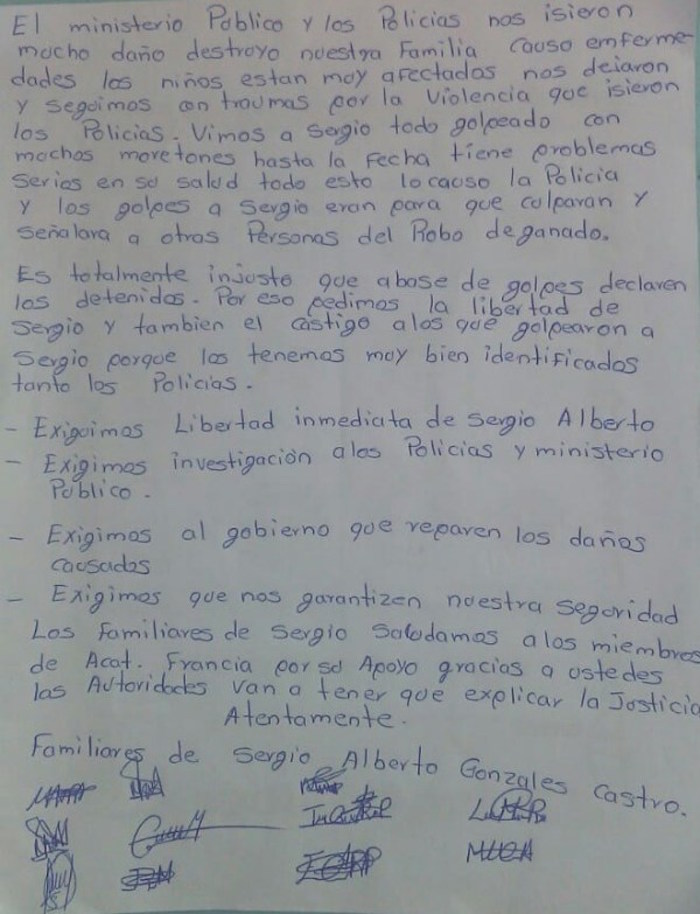 El ministerio Público y los Policias nos isieron
mucho daño destroyo nuestra Familia causo emferme-
dades los niños estan muy afectados nos dejaron
y seguimos con traumas por la violencia que isieron
los Policias. Vimos a sergio todo golpeado con
muchos moretones hasta la fecha tiene problemas
series en su salud todo esto lo causo la Policia
y los golpes a sergio eran para que culparan y
señalara a otras Personas del Robo de ganado.
Es totalmente injusto que abase de golpes declaren
los detenidos. Por eso pedimos la libertad de
sergio y tambien el castigo alos que golpearon a
sergio porque los tenemos muy bien identificados
tanto los Policias.
- Exiguimos Libertad inmediata de sergio Alberto
- Exigimos investigación alos Policias y ministerio
Público.
- Exigimos al gobierno que reparen los daños
causados
- Exigimos que nos garantizen nuestra seguridad
Los familiares de sergio saludamos alos miembros
de Acat. Francia por su Apoyo gracias a ustedes
las Autoridades van a tener que explicar la Justicia
Atentamente.
Familiares de sergio Alberto Gonzales Castro.